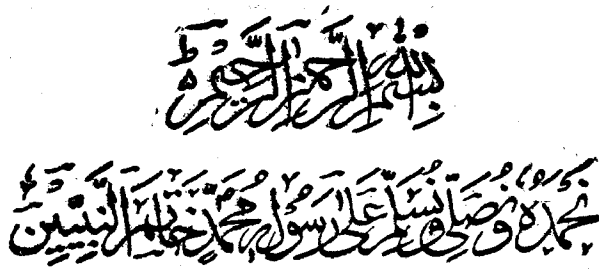 بسم الله الرحمن الرحيم
نحمده ونصلي ونسلم على رسوله محمد خاتم النبيين